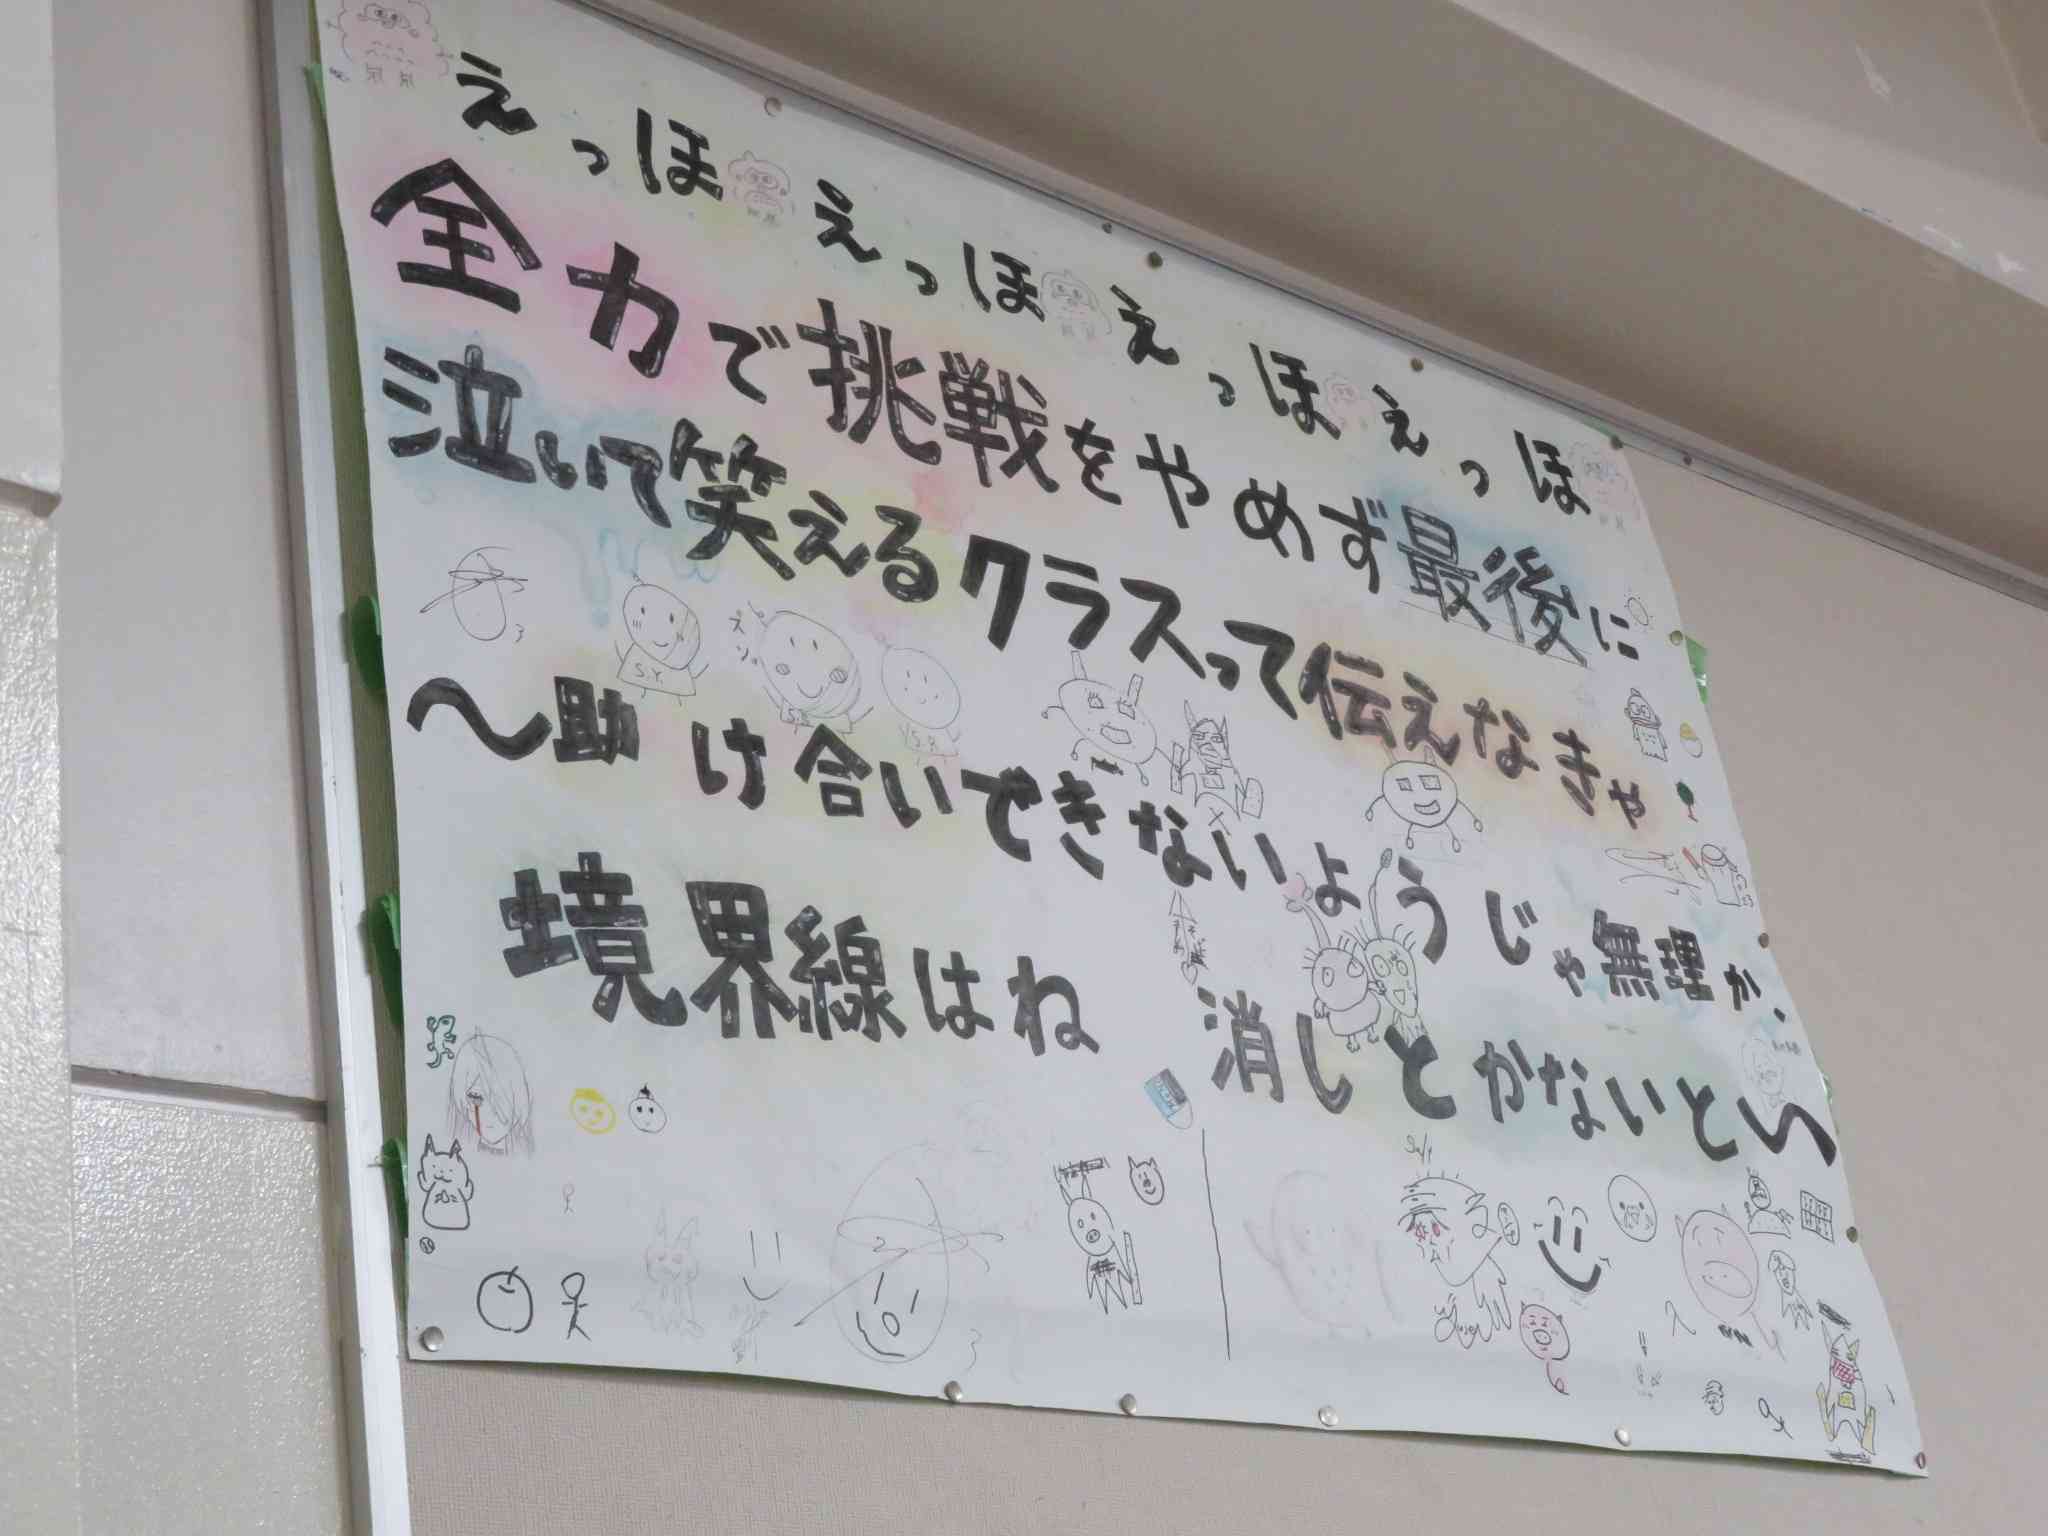 えっほ えっほ えっほ えっほ
全力で挑戦をやめず最後に
泣いて笑えるクラスって伝えなきゃ
～助け合いできないようじゃ無理か、
境界線はね 消しとかないと～
S.Y.